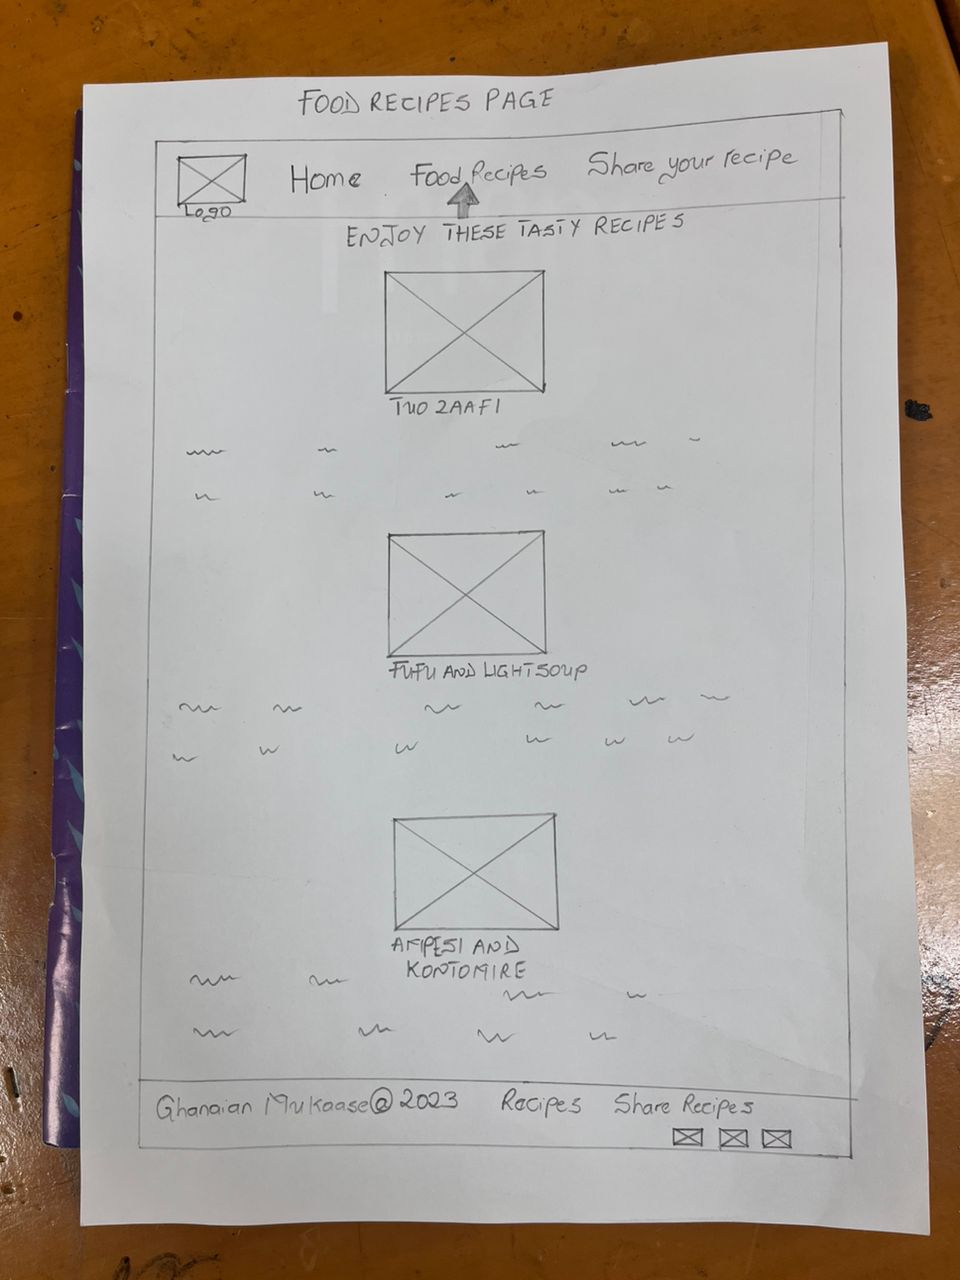 FOOD RECIPES PAGE
Home Food Recipes Share your recipe
Logo
ENJOY THESE TASTY RECIPES
TUO ZAAFI
FUFU AND LIGHTSOUP
AMPESI AND
KONTOMIRE
Ghanaian Mukaase@ 2023 Recipes Share Recipes